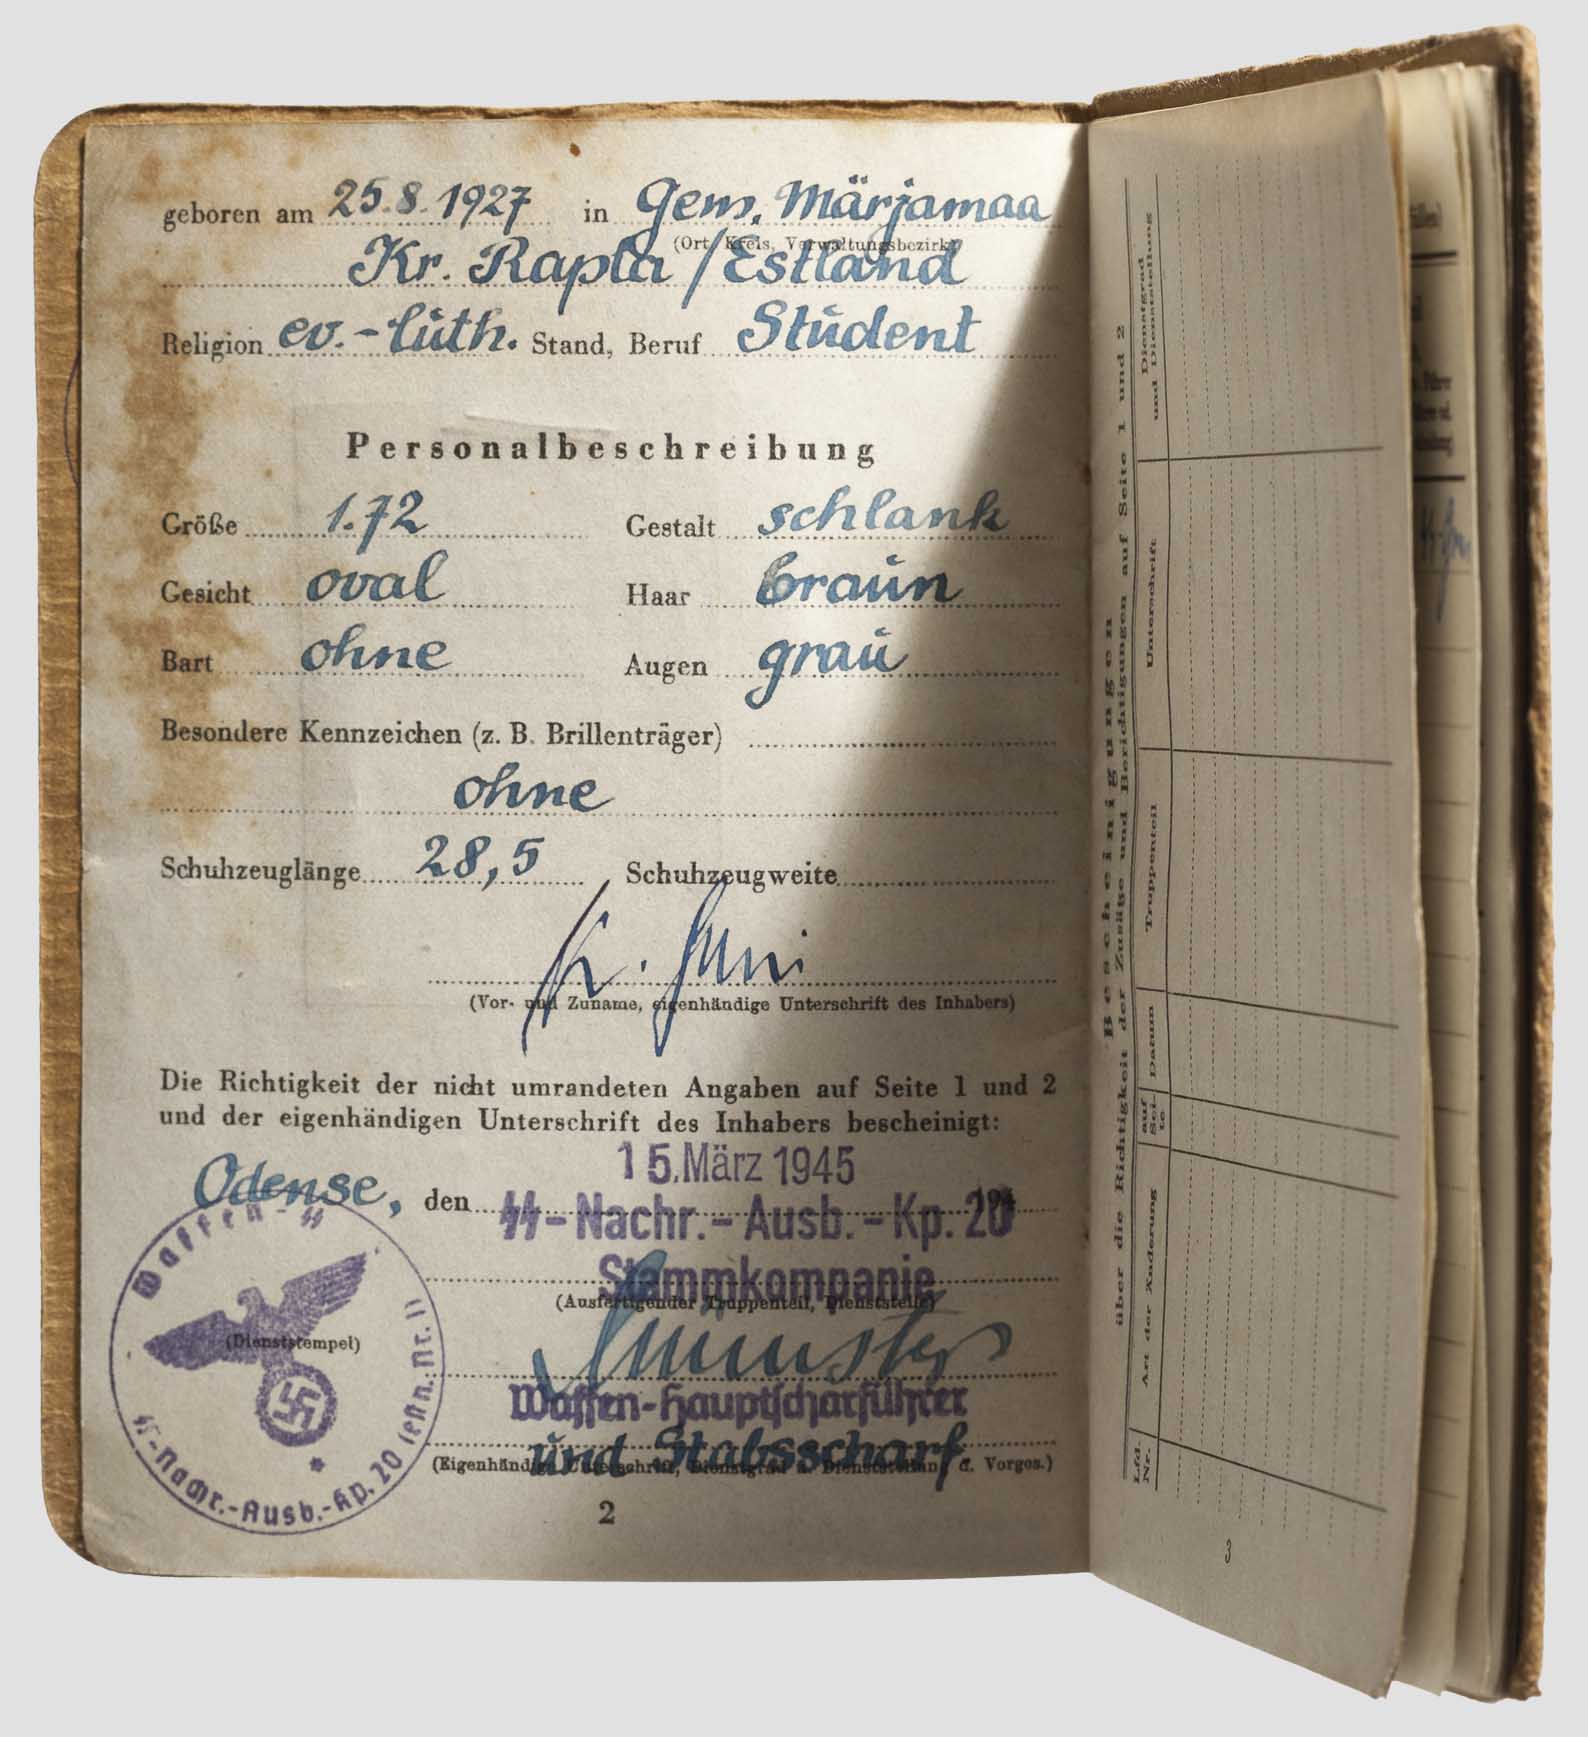 geboren am 25.8.1927 in Gem. Märjamaa
(Ort, Kreis, Verwaltungsbezirk)
Kr. Rapla/Estland
Religion ev.-luth. Stand, Beruf Student
Personalbeschreibung
Größe 1.72 Gestalt schlank
Gesicht oval Haar braun
Bart ohne Augen grau
Besondere Kennzeichen (z. B. Brillenträger)
ohne
Schuhzeuglänge 28,5 Schuhzeugweite
(Vor- und Zuname, eigenhändige Unterschrift des Inhabers)
Die Richtigkeit der nicht umrandeten Angaben auf Seite 1 und 2
und der eigenhändigen Unterschrift des Inhabers bescheinigt:
15. März 1945
Odense, den
SS-Nachr.-Ausb.-Kp. 20
Stammkompanie
(Ausfertigender Truppenteil, Dienststelle)
Waffen-Hauptscharführer
und Stabsscharf.
(Eigenhändige Unterschrift, Dienstgrad u. Dienststellung d. Vorges.)
Waffen-SS
(Dienststempel)
SS-Nachr.-Ausb.-Kp. 20 (estn. Nr. 1)
2
Bescheinigungen
über die Richtigkeit der Zusätze und Berichtigungen auf Seite 1 und 2
Lfd. Nr.
Art der Änderung
auf Seite
Datum
Truppenteil
Unterschrift
Dienstgrad und Dienststellung
3